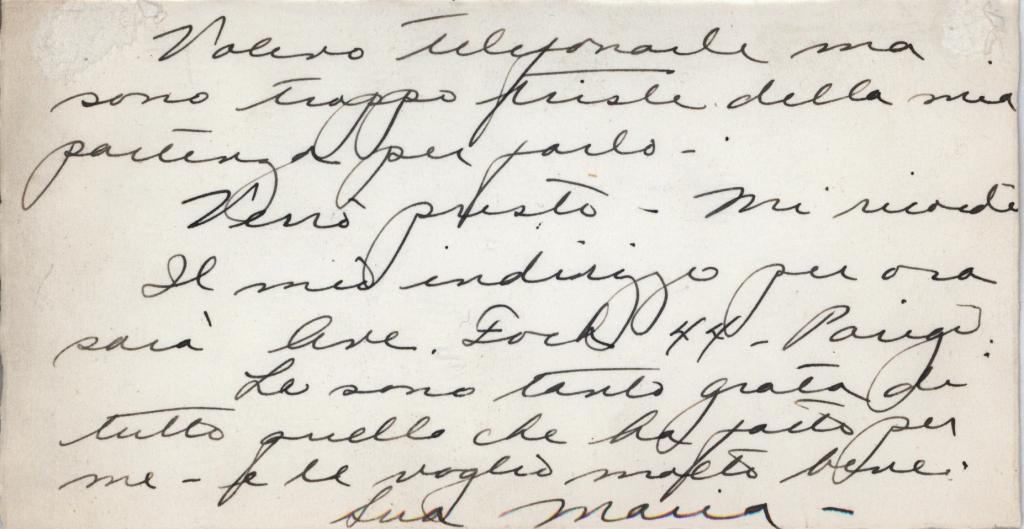 Volevo telefonarle ma
sono troppo triste della mia
partenza per farlo -
Verrò presto - Mi ricordi
Il mio indirizzo per ora
sarà Ave. Foch 44 - Parigi.
Le sono tanto grata di
tutto quello che ha fatto per
me - e le voglio molto bene.
Sua Maria -